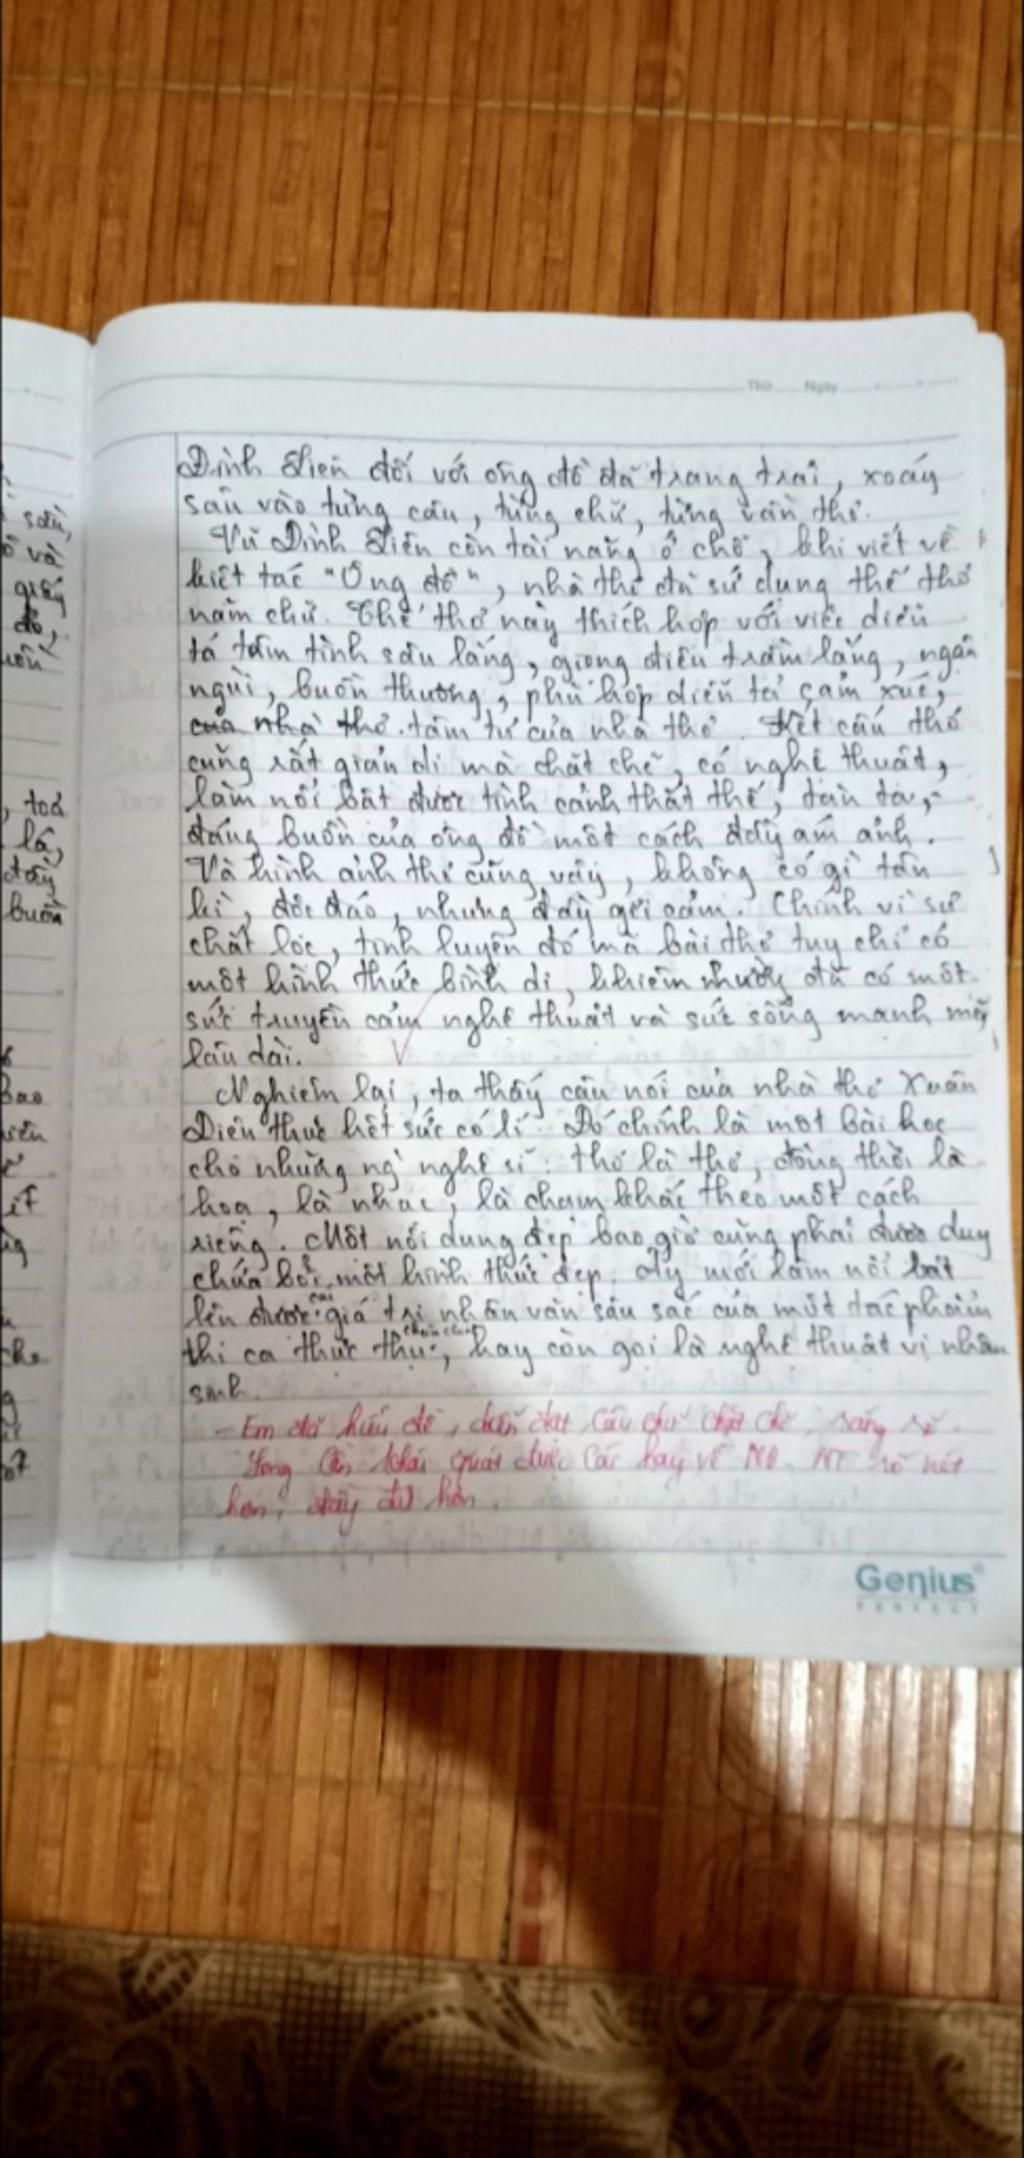 Thứ Ngày
Đình Liên đối với ông đồ đã trang trải, xoáy
sâu vào từng câu, từng chữ, từng vần thơ.
Vũ Đình Liên còn tài năng ở chỗ, khi viết về
kiệt tác "Ông đồ", nhà thơ đã sử dụng thể thơ
năm chữ. Thể thơ này thích hợp với việc diễn
tả tâm tình sâu lắng, giọng điệu trầm lắng, ngậm
ngùi, buồn thương, phù hợp diễn tả cảm xúc,
của nhà thơ. tâm tư của nhà thơ. Kết cấu thơ
cũng rất giản dị mà chặt chẽ, có nghệ thuật,
làm nổi bật được tình cảnh thất thế, tàn tạ,
đáng buồn của ông đồ một cách đầy ám ảnh.
Và hình ảnh thơ cũng vậy, không có gì tân
kì, độc đáo, nhưng đầy gợi cảm. Chính vì sự
chắt lọc, tinh luyện đó mà bài thơ tuy chỉ có
một hình thức bình dị, khiêm nhường đã có một
sức truyền cảm nghệ thuật và sức sống mạnh mẽ,
lâu dài.
Nghiệm lại, ta thấy câu nói của nhà thơ Xuân
Diệu thực hết sức có lí. Đó chính là một bài học
cho những ng' nghệ sĩ: thơ là thơ, đồng thời là
họa, là nhạc, là chạm khắc theo một cách
riêng. Một nội dung đẹp bao giờ cũng phải được duy
chứa bởi một hình thức đẹp. mới làm nổi bật
lên được cái giá trị nhân văn sâu sắc của một tác phẩm
thi ca thực thụ, chân chính, hay còn gọi là nghệ thuật vị nhân
sinh.
- Em đã hiểu đề, diễn đạt câu chữ chặt chẽ, sáng rõ.
Song cần khái quát được cái hay về ND, NT rõ nét
hơn, đầy đủ hơn.
Genius
PERFECT
sâu,
và
giấy
đỏ,
, toả
lá,
đầy
buồn
bao